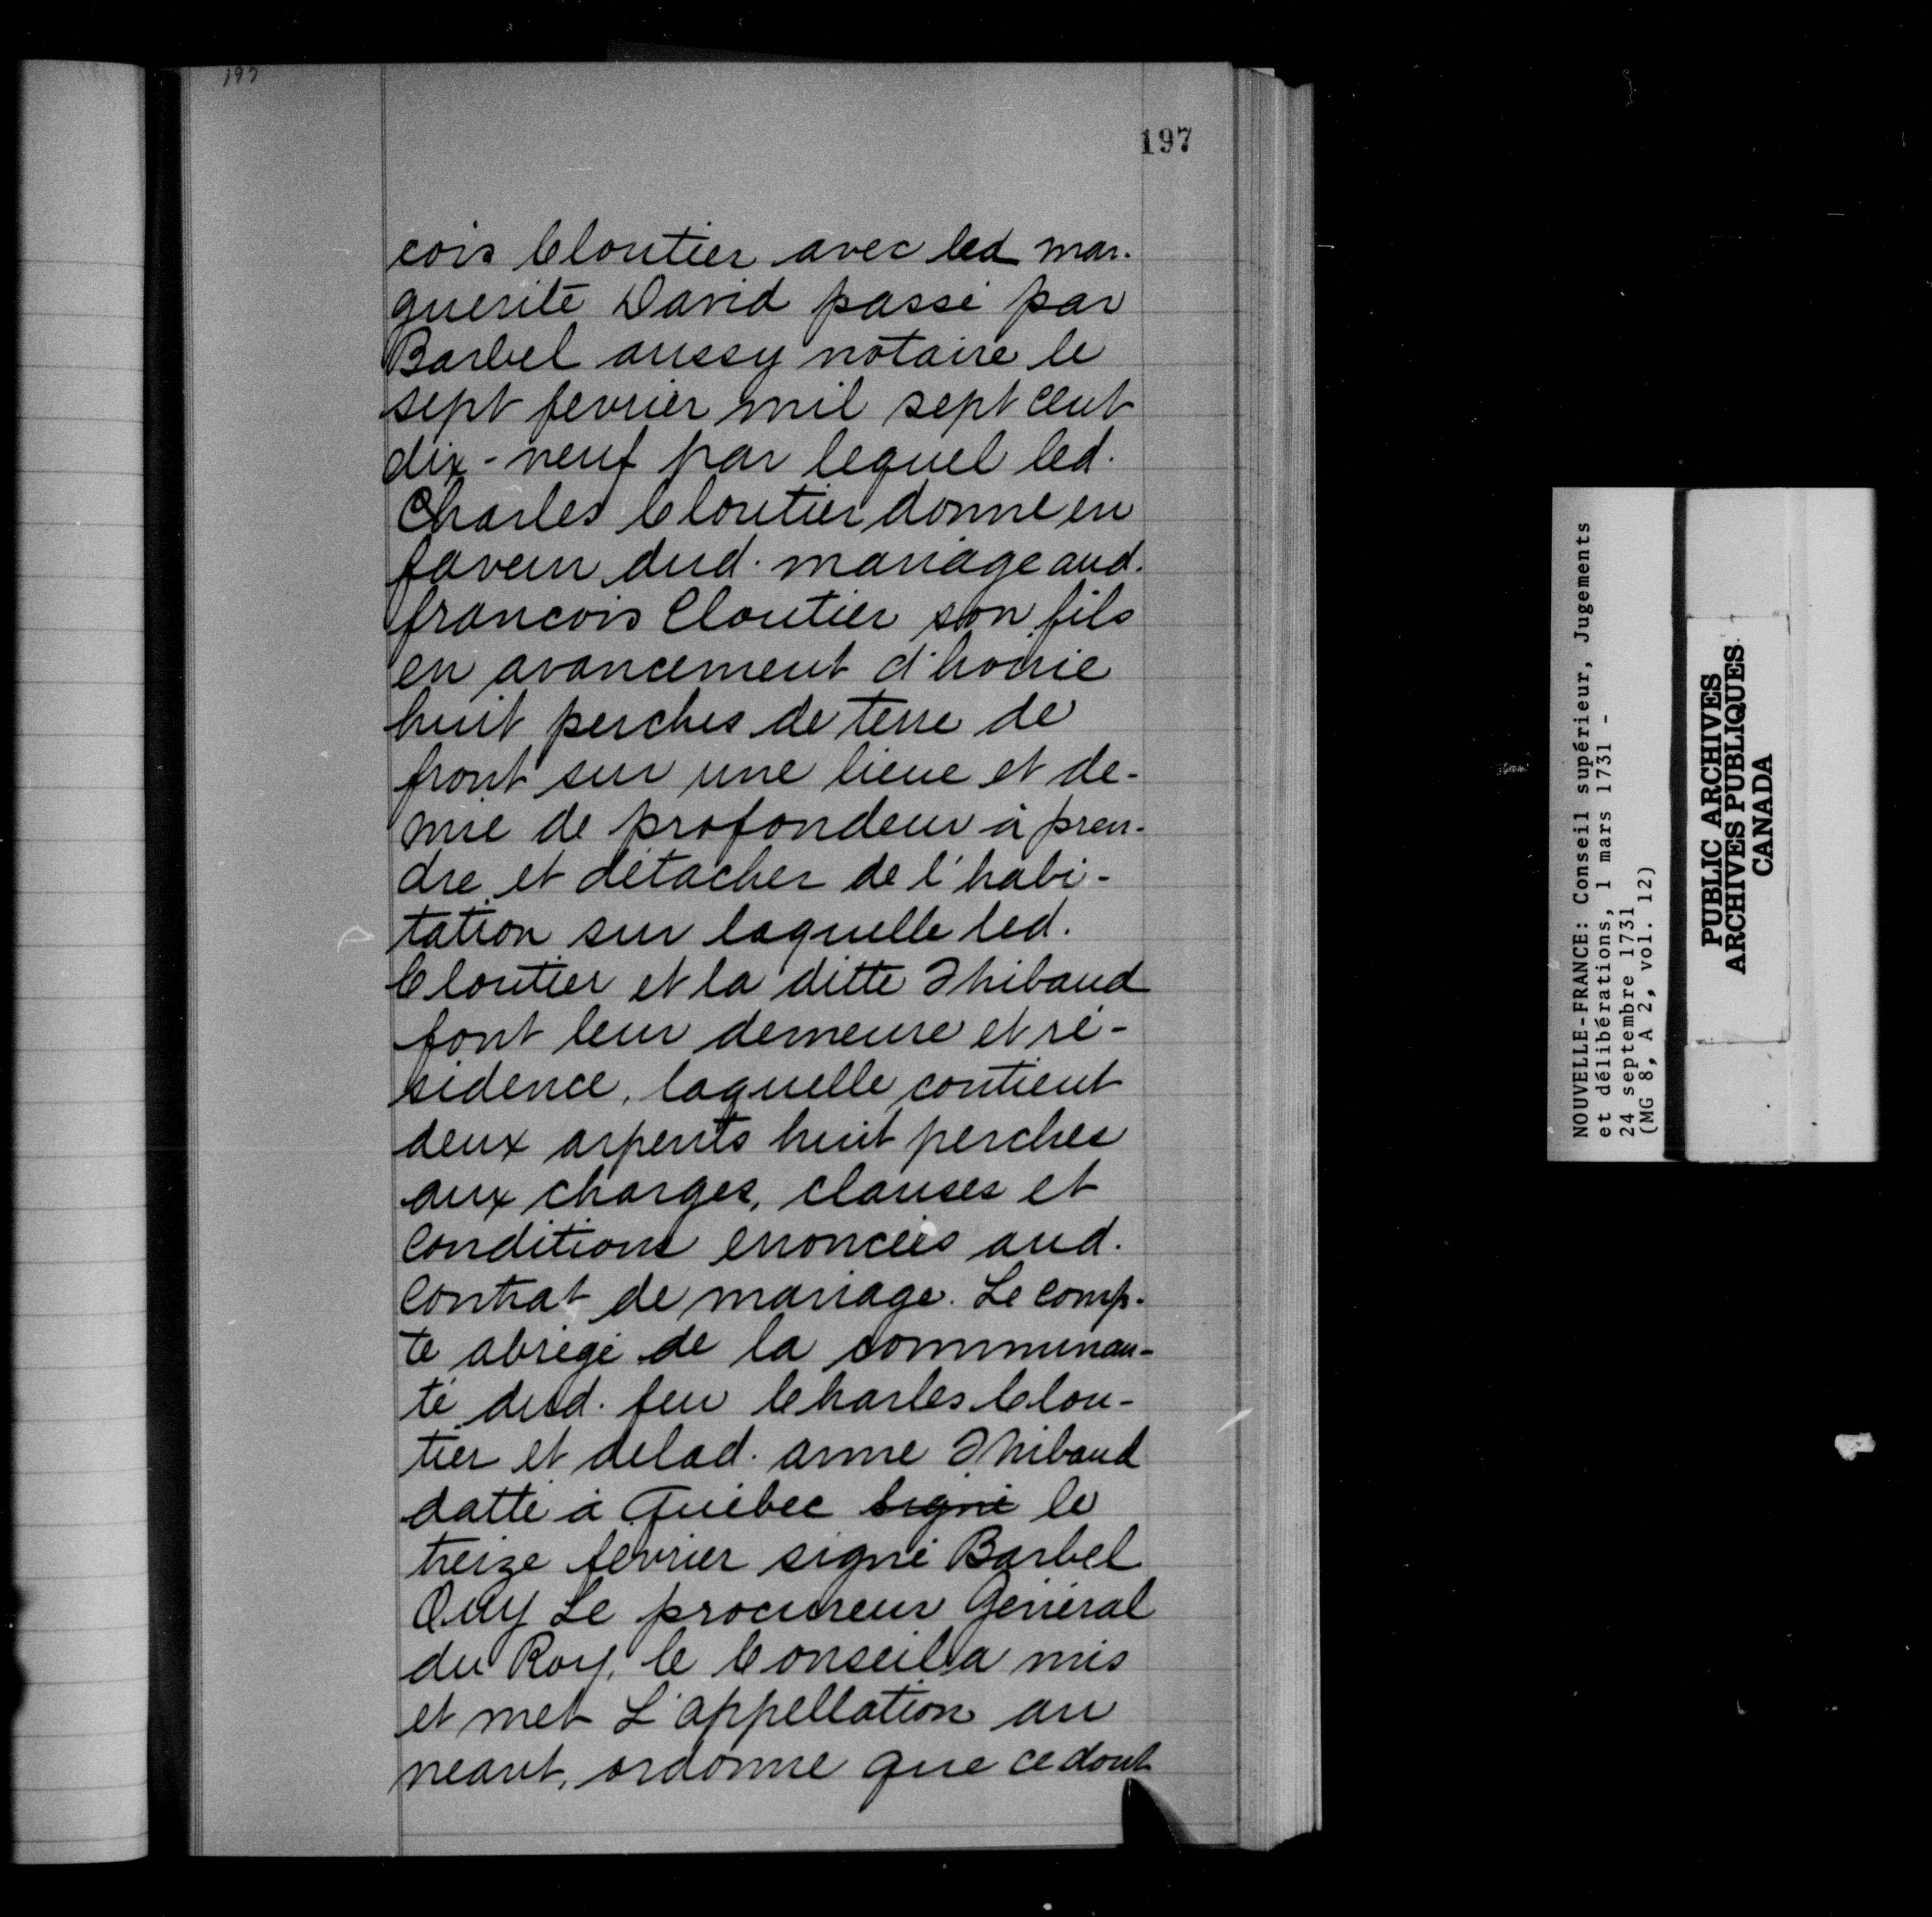 197
197
cois Cloutier avec led mar-
guerite David passé par
Barbel aussy notaire le
sept fevrier mil sept cent
dix-neuf par lequel led.
Charles Cloutier donne en
faveur dud. mariage aud.
francois Cloutier son fils
en avancement d'hoirie
huit perches de terre de
front sur une lieue et de-
mie de profondeur à pren-
dre et détacher de l'habi-
tation sur laquelle led.
Cloutier et la ditte Thibaud
font leur demeure et ré-
sidence, laquelle contient
deux arpents huit perches
aux charges, clauses et
conditions enoncées aud.
contrat de mariage. Le comp-
te abrégé de la communau-
té dud. feu Charles Clou-
tier et delad. anne Thibaud
datté à Québec signé le
treize fevrier signé Barbel
Ouy Le procureur Général
du Roy, le Conseil a mis
et met L'appellation au
neant, ordonne que ce dont
NOUVELLE-FRANCE: Conseil supérieur, Jugements
et délibérations, 1 mars 1731 -
24 septembre 1731
(MG 8, A 2, vol. 12)
PUBLIC ARCHIVES
ARCHIVES PUBLIQUES
CANADA